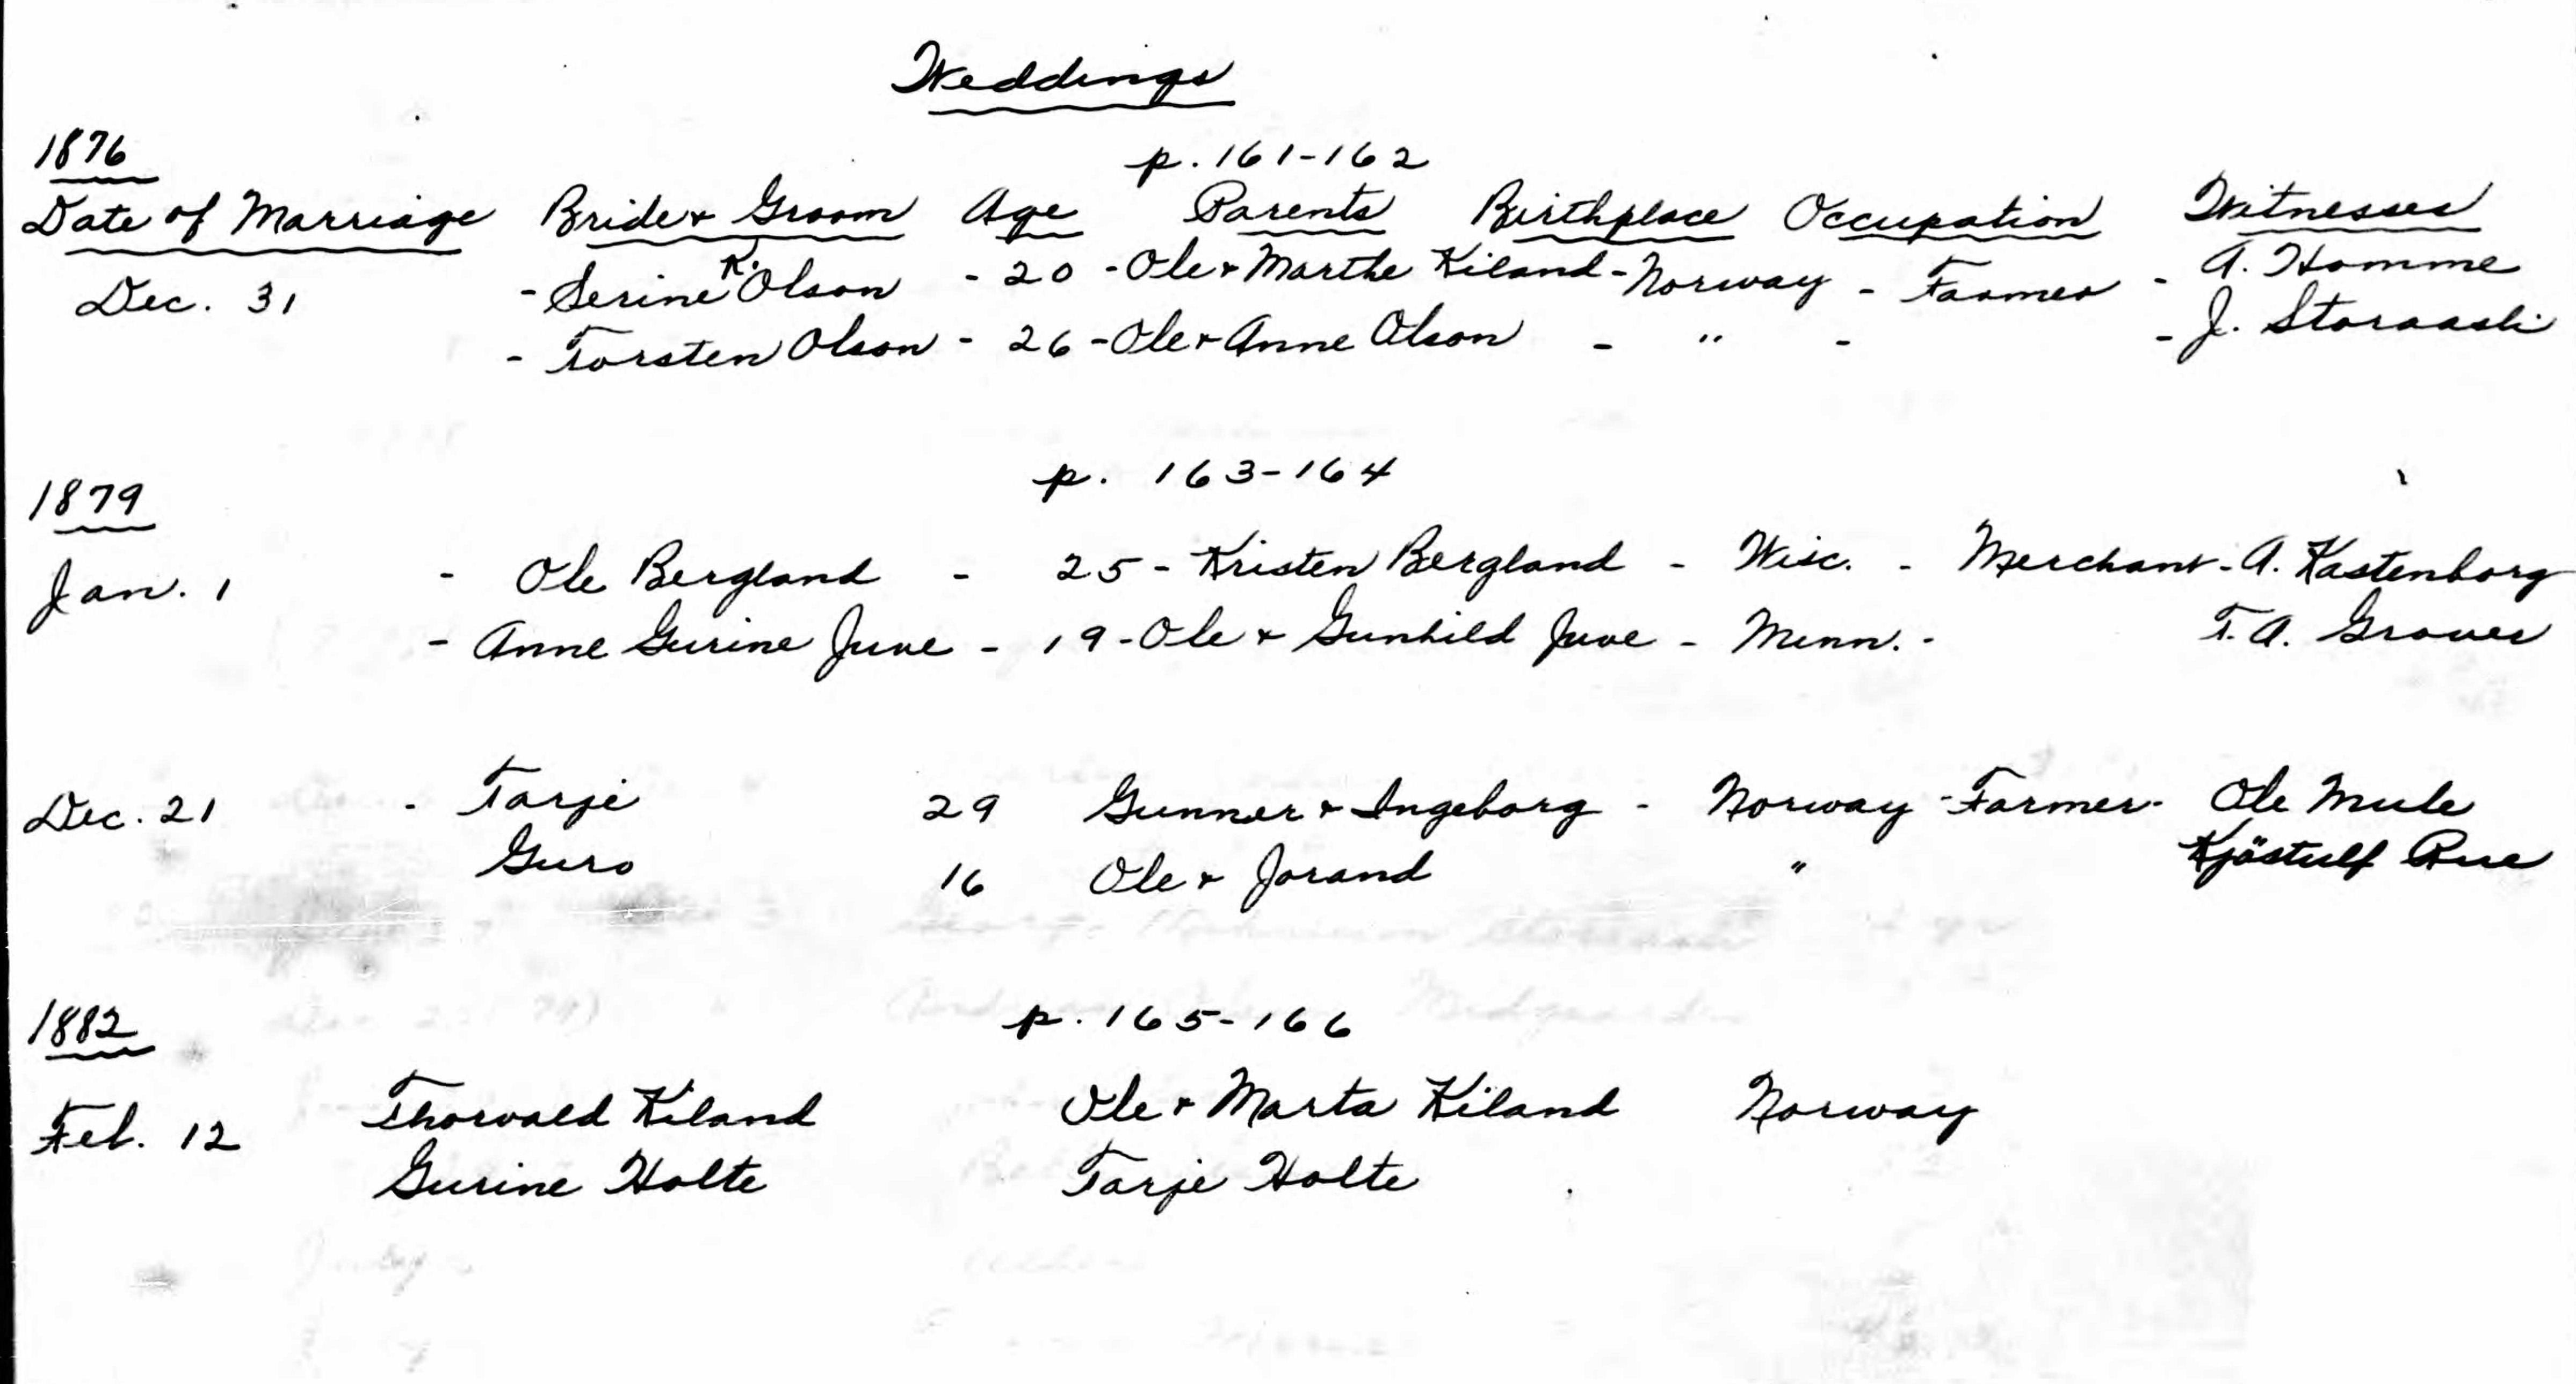 Weddings
1876
p. 161-162
Date of Marriage Bride & Groom Age Parents Birthplace Occupation Witnesses
Dec. 31 - Serine K. Olson - 20 - Ole & Marthe Kiland - Norway - Farmer - A. Homme
- Torsten Olson - 26 - Ole & Anne Olson - " - - J. Storaasli
1879
p. 163-164
Jan. 1 - Ole Bergland - 25 - Kristen Bergland - Wisc. - Merchant - A. Kastenborg
- Anne Gurine Juve - 19 - Ole & Gunhild Juve - Minn. - T. A. Graver
Dec. 21 - Tarje 29 Gunner & Ingeborg - Norway - Farmer - Ole Mule
Guro 16 Ole & Jorand " Kjöstulf Rue
1882
p. 165-166
Feb. 12 Thorvald Kiland Ole & Marta Kiland Norway
Gurine Holte Tarje Holte